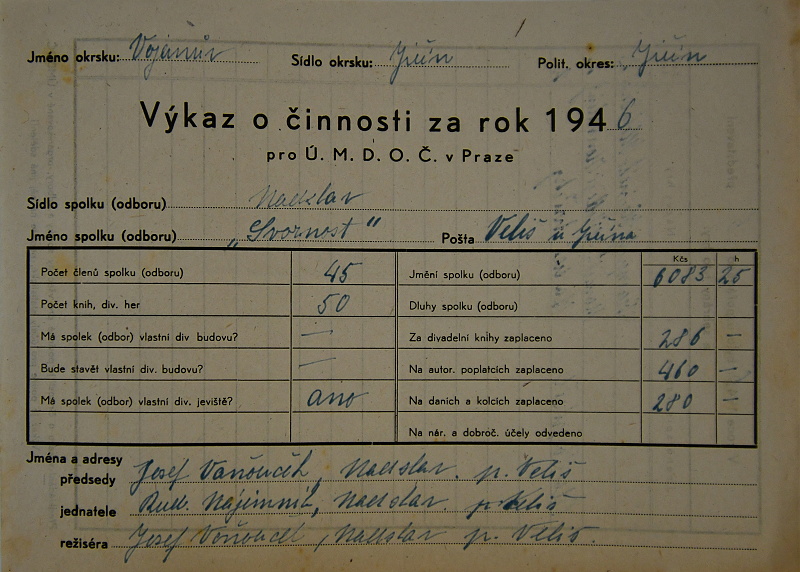 Jméno okrsku: Vojanův Sídlo okrsku: Jičín Polit. okres: Jičín
Výkaz o činnosti za rok 1946
pro Ú. M. D. O. Č. v Praze
Sídlo spolku (odboru) Nadslav
Jméno spolku (odboru) „Svornost" Pošta Veliš u Jičína
Kčs h
Počet členů spolku (odboru) 45 Jmění spolku (odboru) 6083 25
Počet knih, div. her 50 Dluhy spolku (odboru)
Má spolek (odbor) vlastní div. budovu? — Za divadelní knihy zaplaceno 286 —
Bude stavět vlastní div. budovu? — Na autor. poplatcích zaplaceno 460 —
Má spolek (odbor) vlastní div. jeviště? ano Na daních a kolcích zaplaceno 280 —
Na nár. a dobroč. účely odvedeno
Jména a adresy
předsedy Josef Vaňouček, Nadslav. p. Veliš
jednatele Rud. Nájemník, Nadslav. p. Veliš
režiséra Josef Vaňouček, Nadslav p. Veliš.